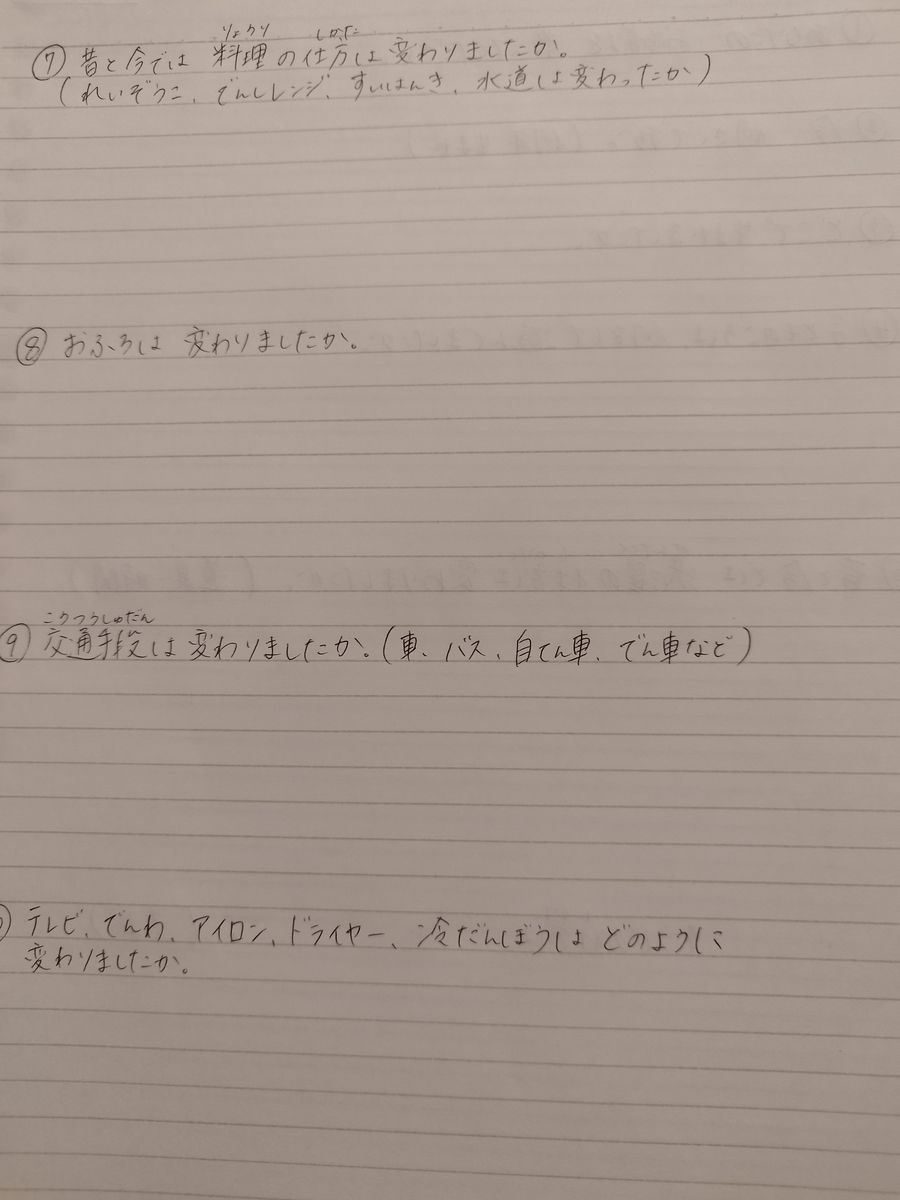 りょうり しかた
⑦ 昔と今では 料理の仕方は変わりましたか。
(れいぞうこ、でんしレンジ、すいはんき、水道は変わったか)
⑧ おふろは 変わりましたか。
こうつうしゅだん
⑨ 交通手段は変わりましたか。(車、バス、自てん車、でん車など)
テレビ、でんわ、アイロン、ドライヤー、冷だんぼうは どのように
変わりましたか。